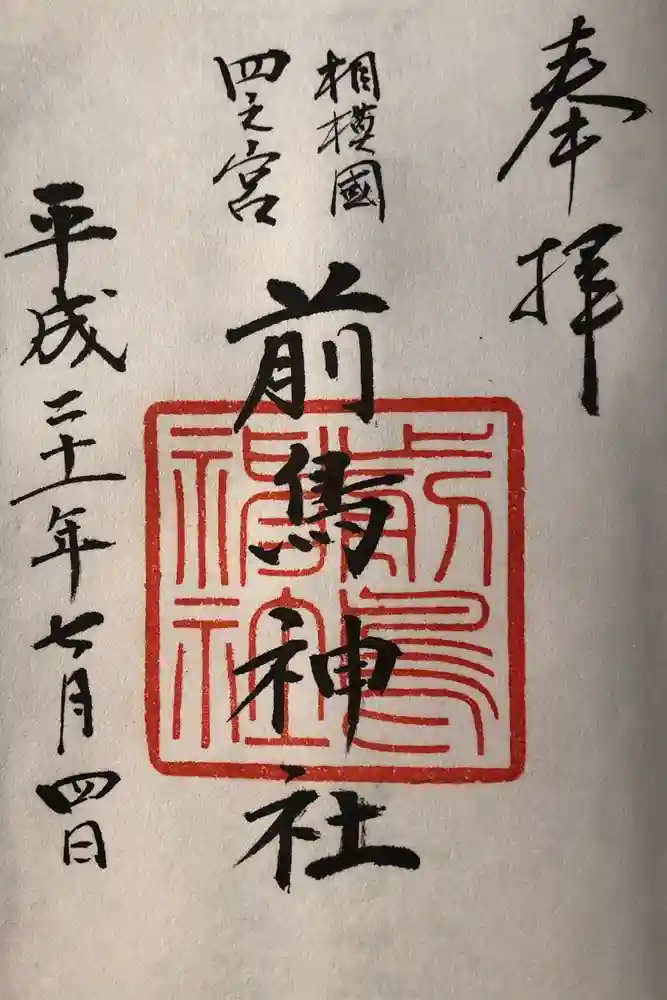 奉拝
相模國
四之宮
前鳥神社
平成二十一年七月四日
前鳥
神社